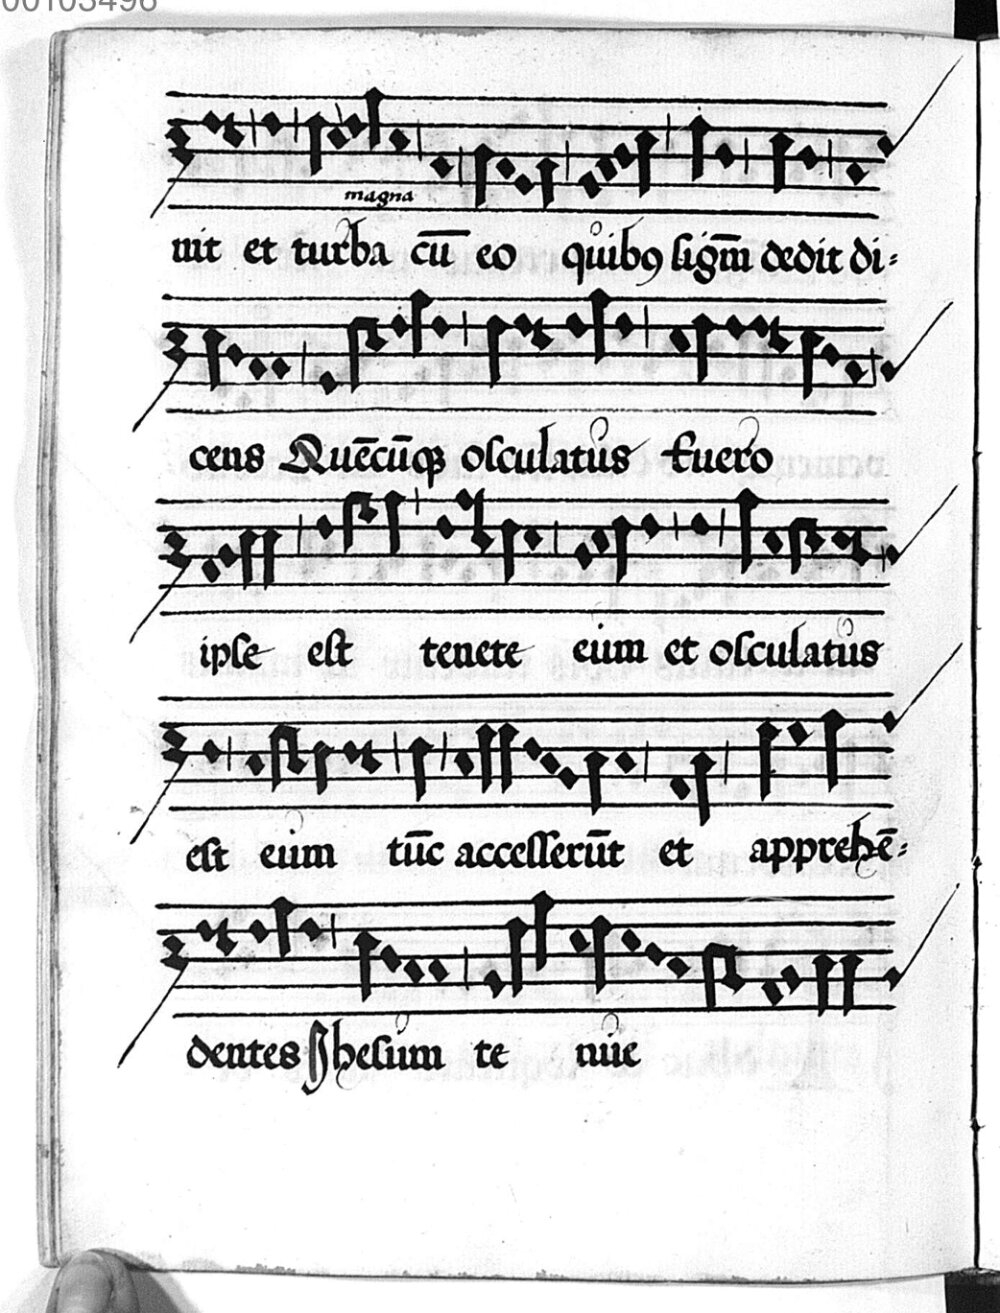 00103496
magna
nit et turba cū eo quibꝯ sigm̄ dedit di⸗
cens Quēcūqꝫ osculatus fuero
ipse est tenete eum et osculatus
est eum tūc accesserūt et apprehē⸗
dentes Jhesum te nue